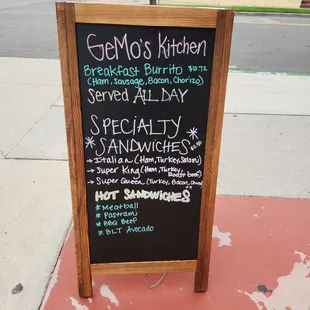 GeMo's Kitchen
Breakfast Burrito $10.72
(Ham, Sausage, Bacon, Chorizo)
Served ALL DAY
SPECIALTY
SANDWICHES
→Italian (Ham, Turkey, Salami)
→Super King (Ham, Turkey,
Roast beef)
→Super Queen (Turkey, Bacon,
HOT SANDWICHES
*Meatball
*Pastrami
*BBQ Beef
*BLT Avocado